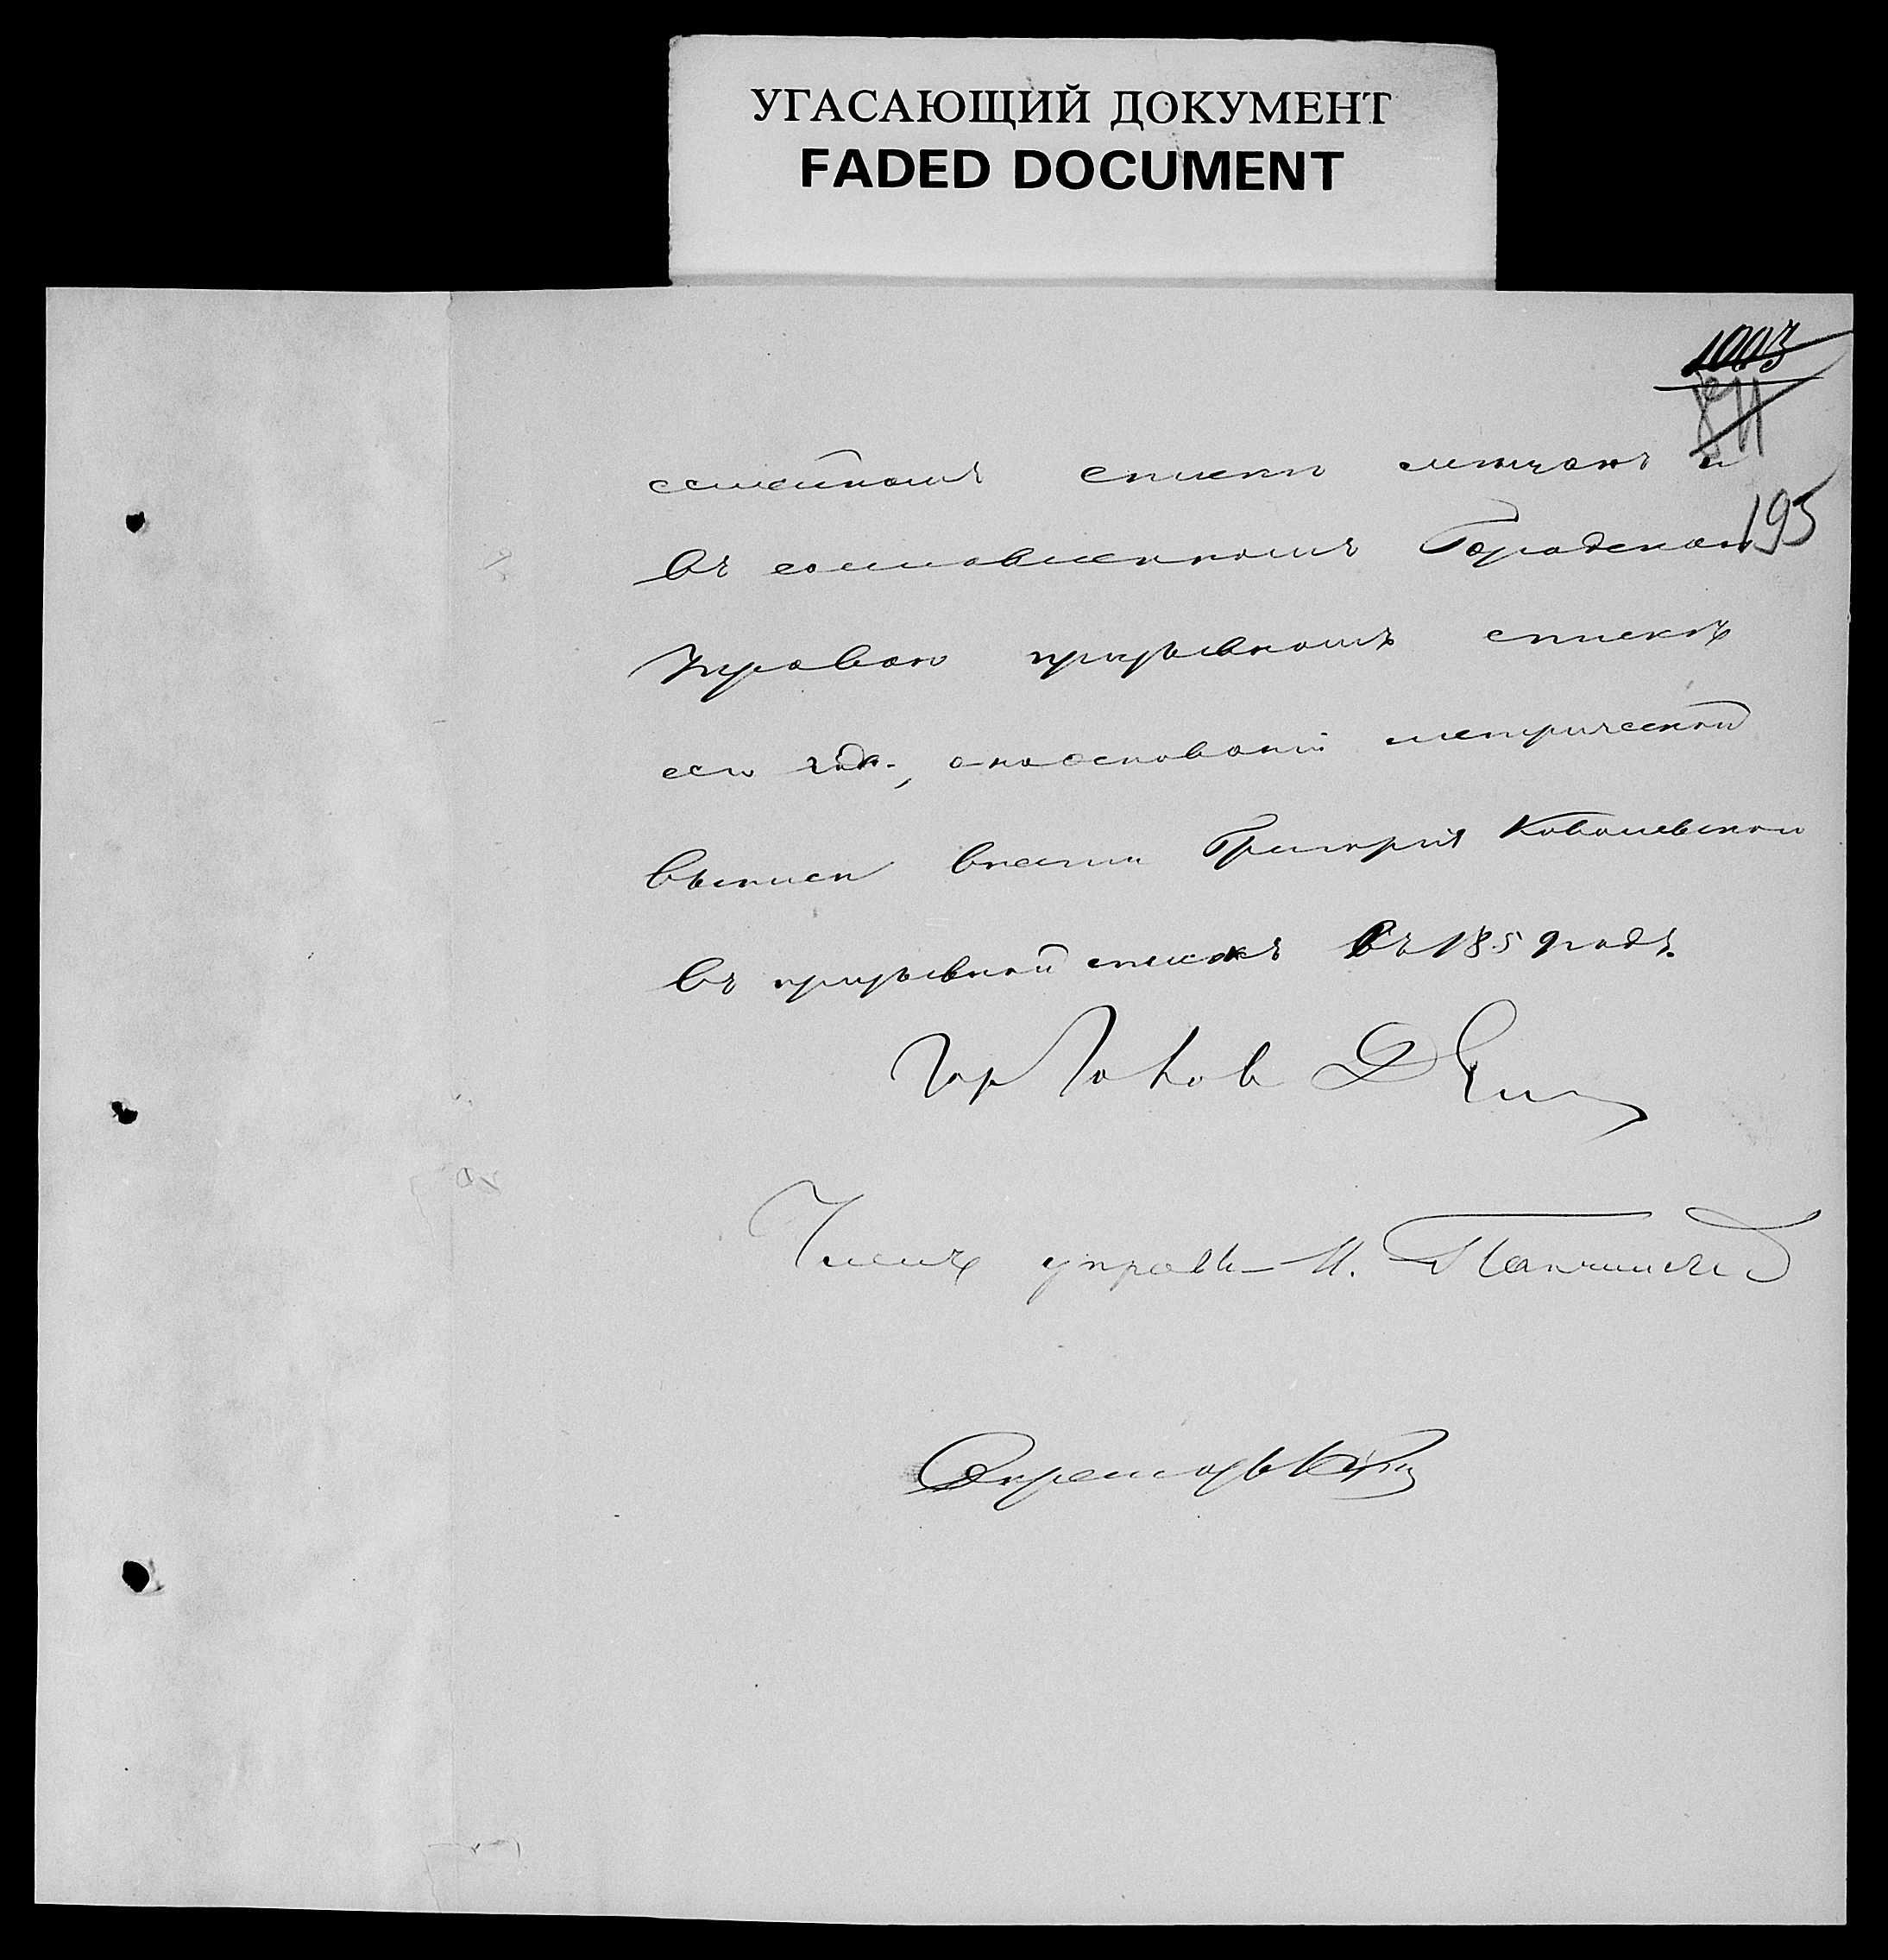 УГАСАЮЩИЙ ДОКУМЕНТ
FADED DOCUMENT
1003
871
195
семейномъ списки мѣщанъ и
въ составленномъ Городскою
Управою призывномъ спискѣ
сего года, а на основаніи метрической
выписи внести Григорія Ковалевскаго
въ призывной списокъ въ 1859 годъ.
Гор Голов Д
Членъ управы И.
Секретарь